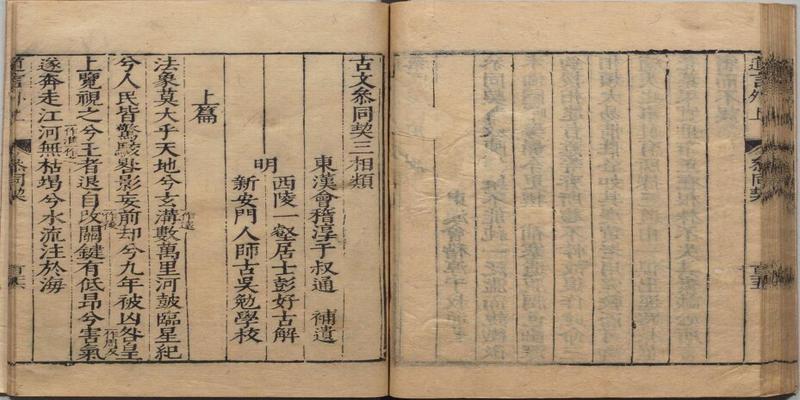 道言外上 叅同契
古文叅同契三相類
東漢會稽淳于叔通 補遺
明
西陵一壑居士彭好古解
新安門人師古吳勉學校
上篇
法象莫大乎天地兮玄溝數萬里河鼓臨星紀
兮人民皆驚駭晷影妄前却兮九年被凶咎皇
上覽視之兮王者退自改關鍵有低昂兮害氣
遂奔走江河無枯竭兮水流注於海
道言外上 叅同契